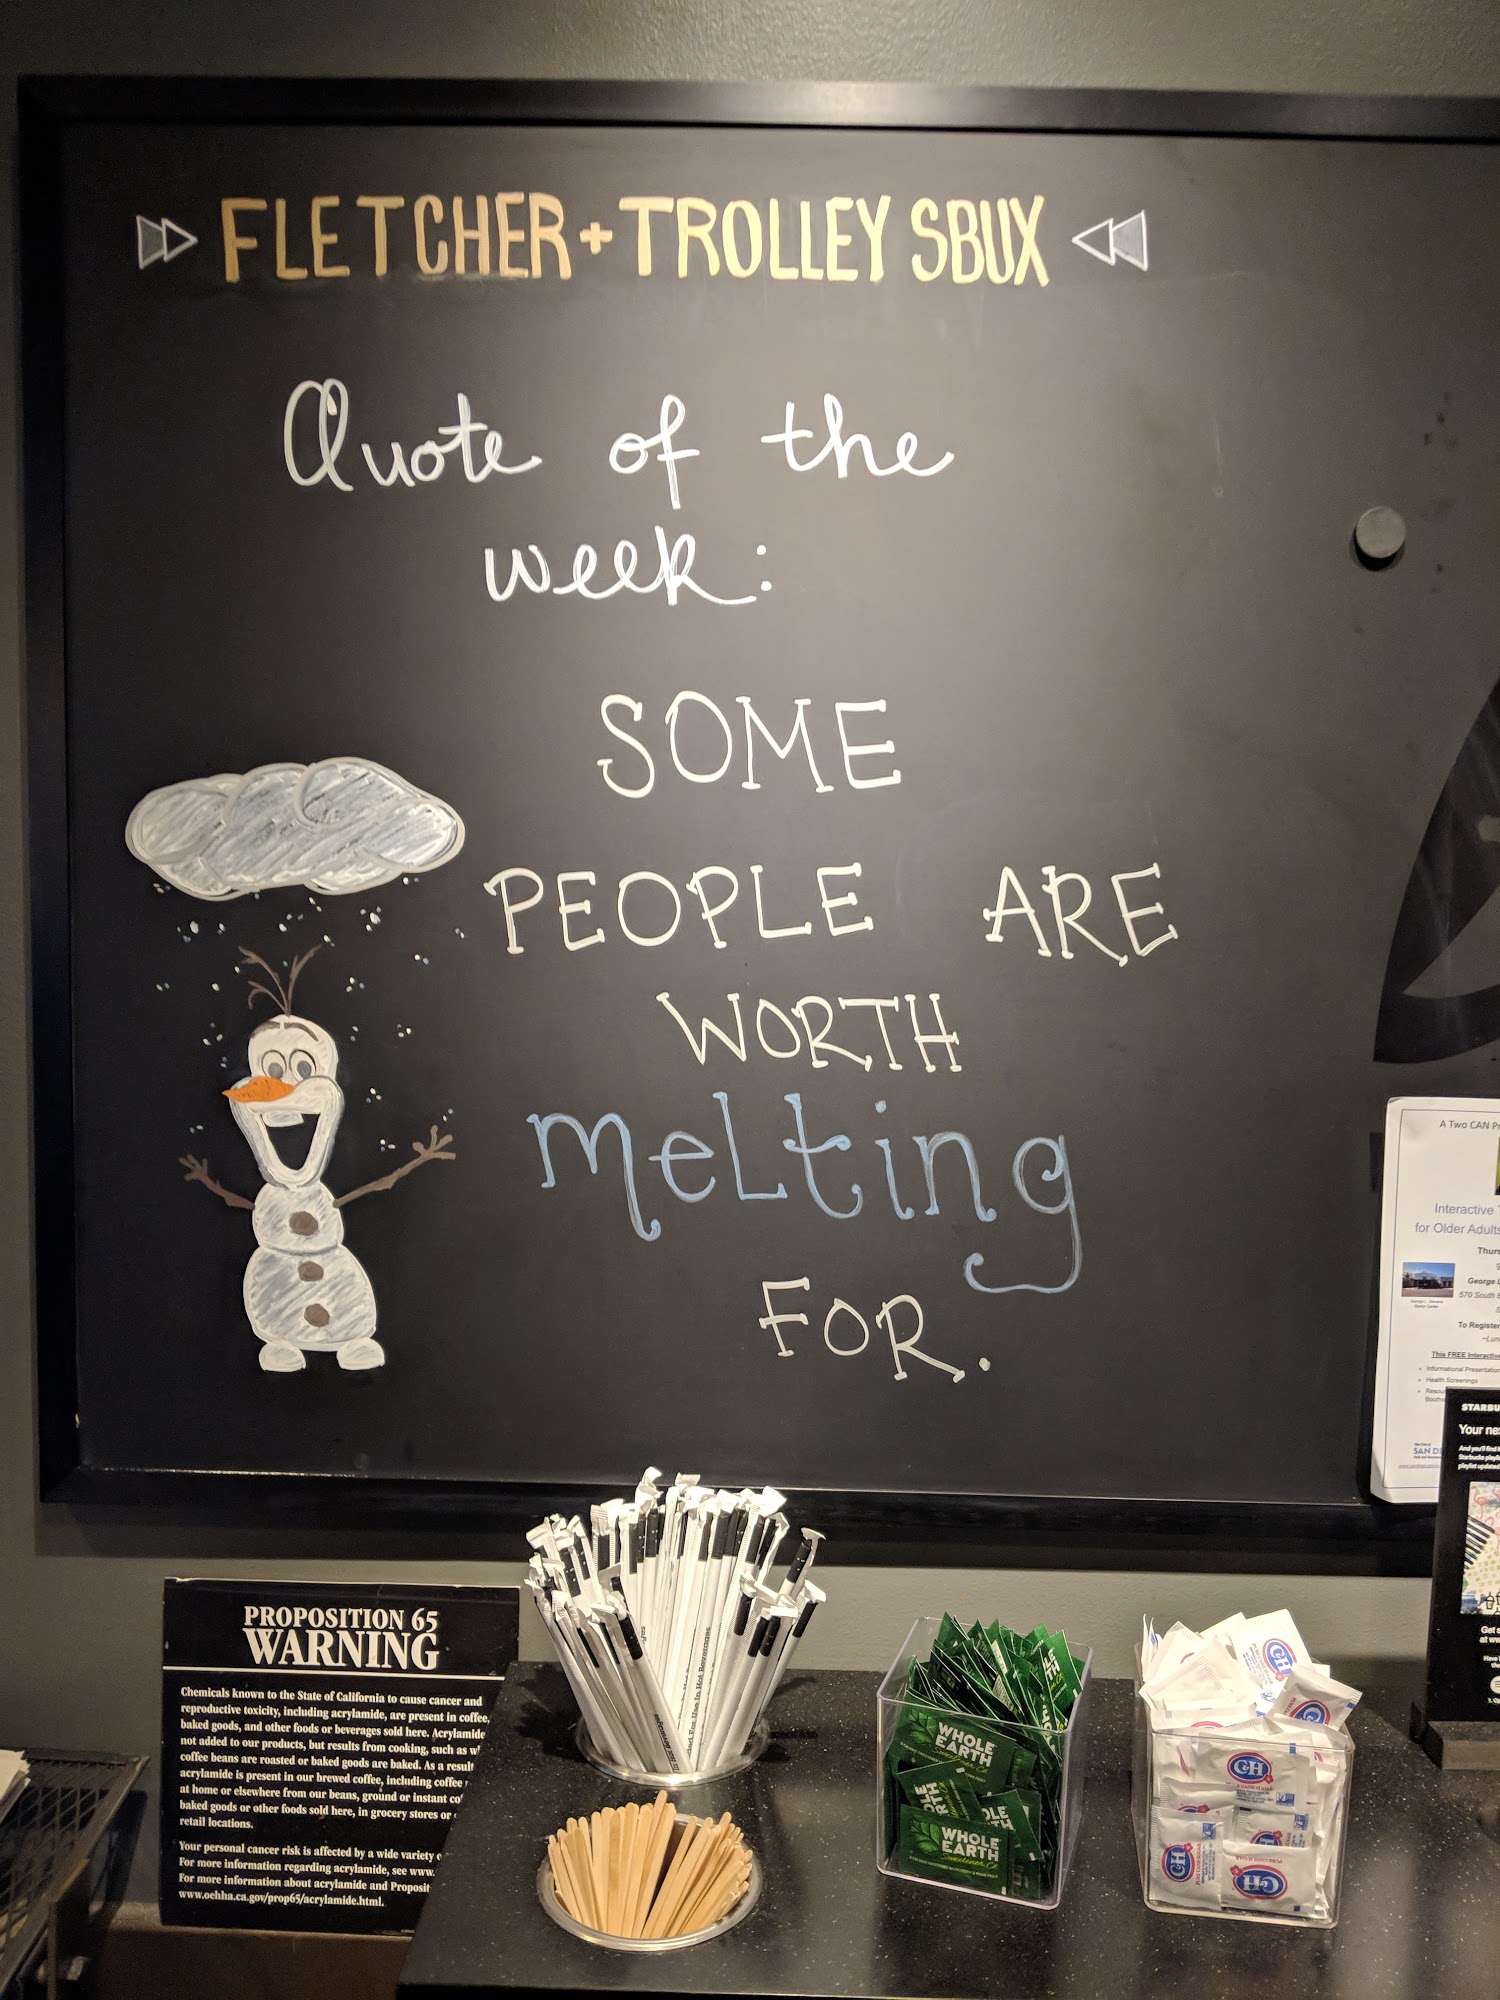 FLETCHER + TROLLEY SBUX
Quote of the
week:
SOME
PEOPLE ARE
WORTH
melting
FOR.
A Two CAN
Interactive
for Older Adults
Thurs
George
570 South
To Register
This FREE Interactive
Informational Presentation
Health Screenings
SAN DI
STARBU
Your ne
And you'll find
Starbucks playli
playlist updated
Get
at
PROPOSITION 65
WARNING
Chemicals known to the State of California to cause cancer and
reproductive toxicity, including acrylamide, are present in coffee,
baked goods, and other foods or beverages sold here. Acrylamide
not added to our products, but results from cooking, such as
coffee beans are roasted or baked goods are baked. As a result
acrylamide is present in our brewed coffee, including coffee
at home or elsewhere from our beans, ground or instant
baked goods or other foods sold here, in grocery stores or
retail locations.
Your personal cancer risk is affected by a wide variety
For more information regarding acrylamide, see www.
For more information about acrylamide and Proposit
www.oehha.ca.gov/prop65/acrylamide.html.
For Use In Hot Beverages
WHOLE
EARTH
Sweetener Co.
WHOLE
EARTH
Sweetener Co.
C&H
C&H
C&H
C&H